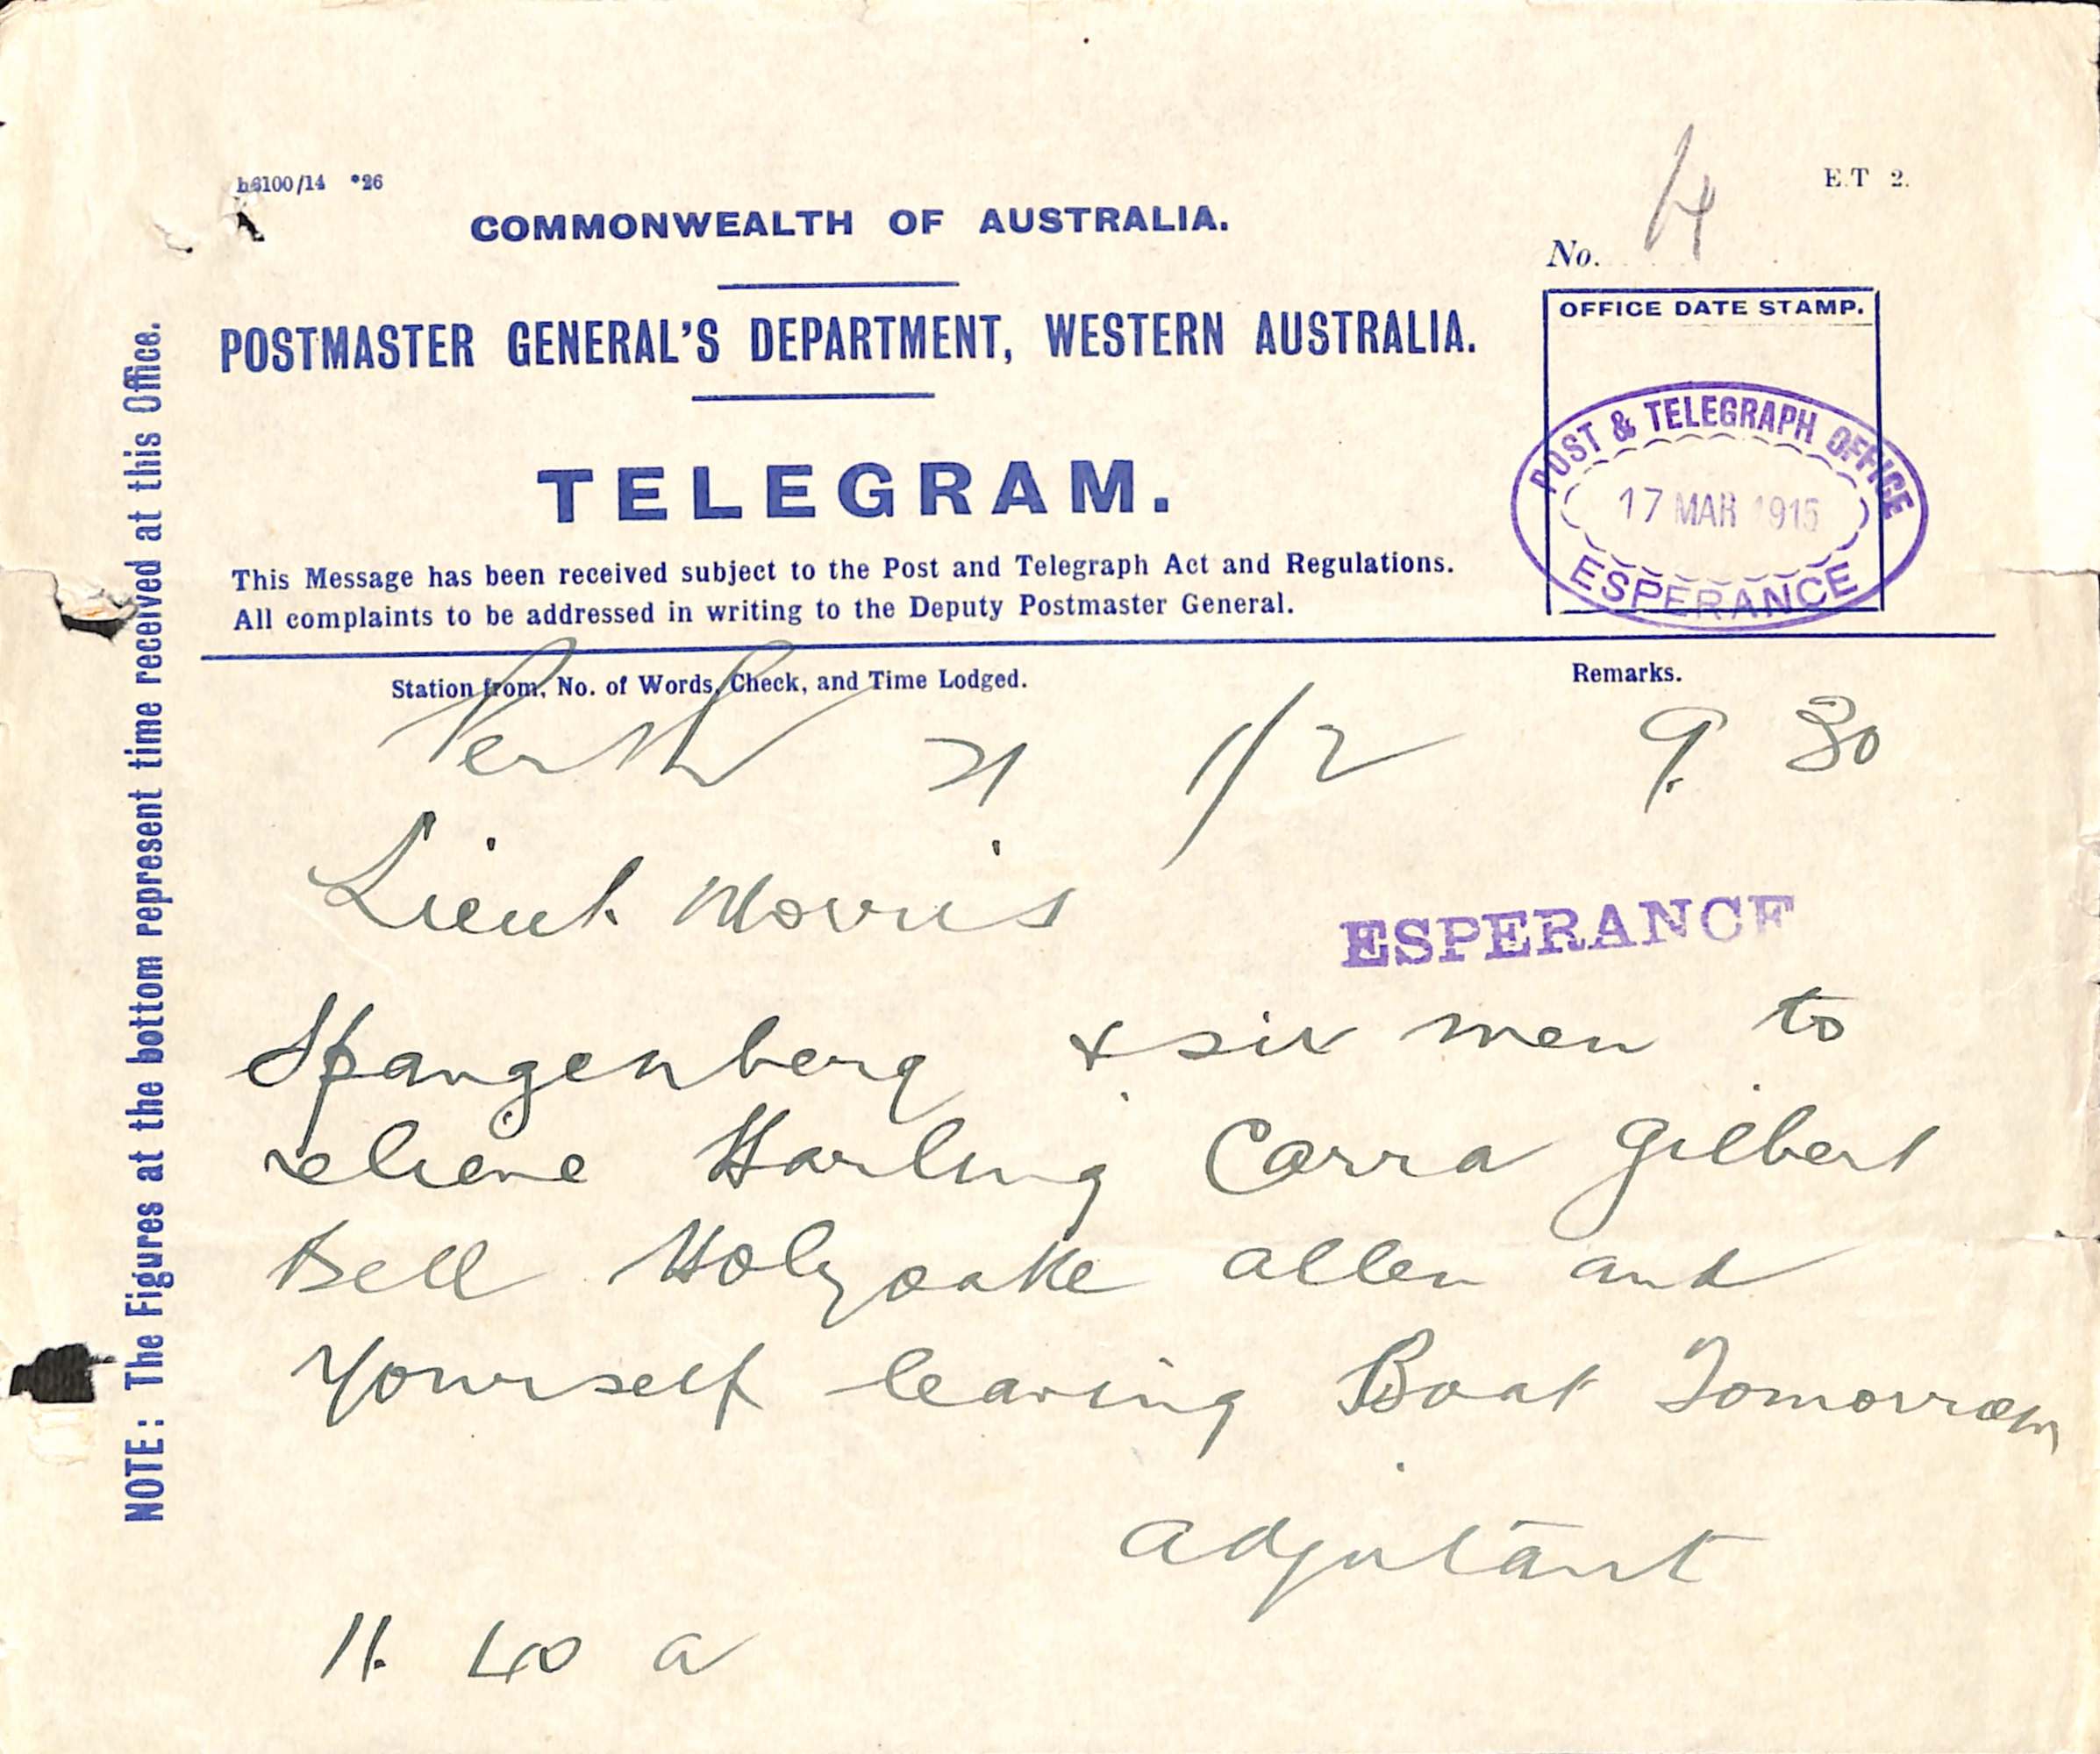 h6100/14 *26
E.T 2.
COMMONWEALTH OF AUSTRALIA.
No. 4
POSTMASTER GENERAL'S DEPARTMENT, WESTERN AUSTRALIA.
OFFICE DATE STAMP.
TELEGRAM.
POST & TELEGRAPH OFFICE
17 MAR 1915
ESPERANCE
This Message has been received subject to the Post and Telegraph Act and Regulations.
All complaints to be addressed in writing to the Deputy Postmaster General.
Station from, No. of Words, Check, and Time Lodged.
Remarks.
Perth 21 1/2 9.30
Lieut. Morris
ESPERANCE
Spangenberg & six men to
relieve Harling Carra Gilbert
Bell Holyoake Allen and
Yourself leaving Boat Tomorrow
Adjutant
11. 40 a
NOTE: The Figures at the bottom represent time received at this Office.